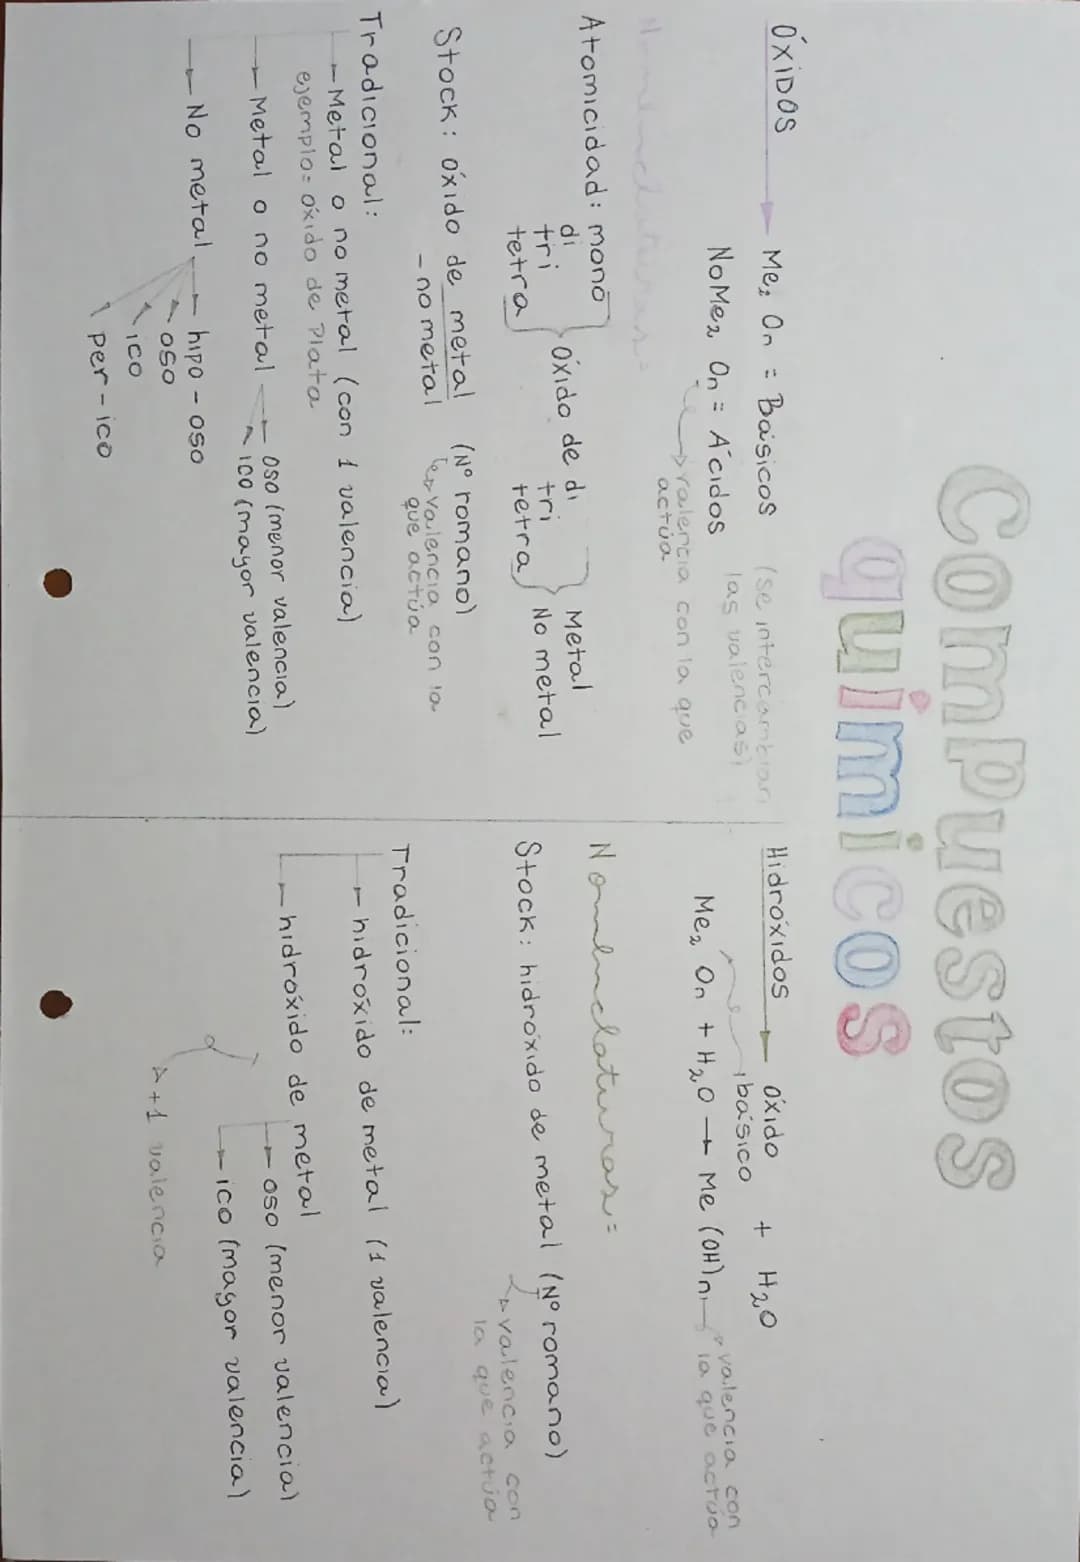 Compuestos
químicos
ÓXIDOS → Me₂ On = Básicos (se intercambian
las valencias)
NoMe₂ On = Ácidos
valencia con la que
actúa
Nomenclaturas=
Atomicidad: mono
di
tri
tetra
Óxido de di
tri
tetra
Metal
No metal
Stock: óxido de metal (Nº romano)
- no metal
valencia con la
que actúa
Tradicional:
→ Metal o no metal (con 1 valencia)
ejemplo= óxido de Plata
→ Metal o no metal → oso (menor valencia)
ico (mayor valencia)
→ No metal → hipo - oso
oso
ico
per - ico
Hidróxidos → Óxido + H₂O
básico
Me₂ On + H₂O → Me (OH)n → valencia con
la que actúa
Nomenclaturas=
Stock: hidróxido de metal (Nº romano)
valencia con
la que actúa
Tradicional:
→ hidróxido de metal (1 valencia)
→ hidróxido de metal
→ oso (menor valencia)
→ ico (mayor valencia)
+1 valencia